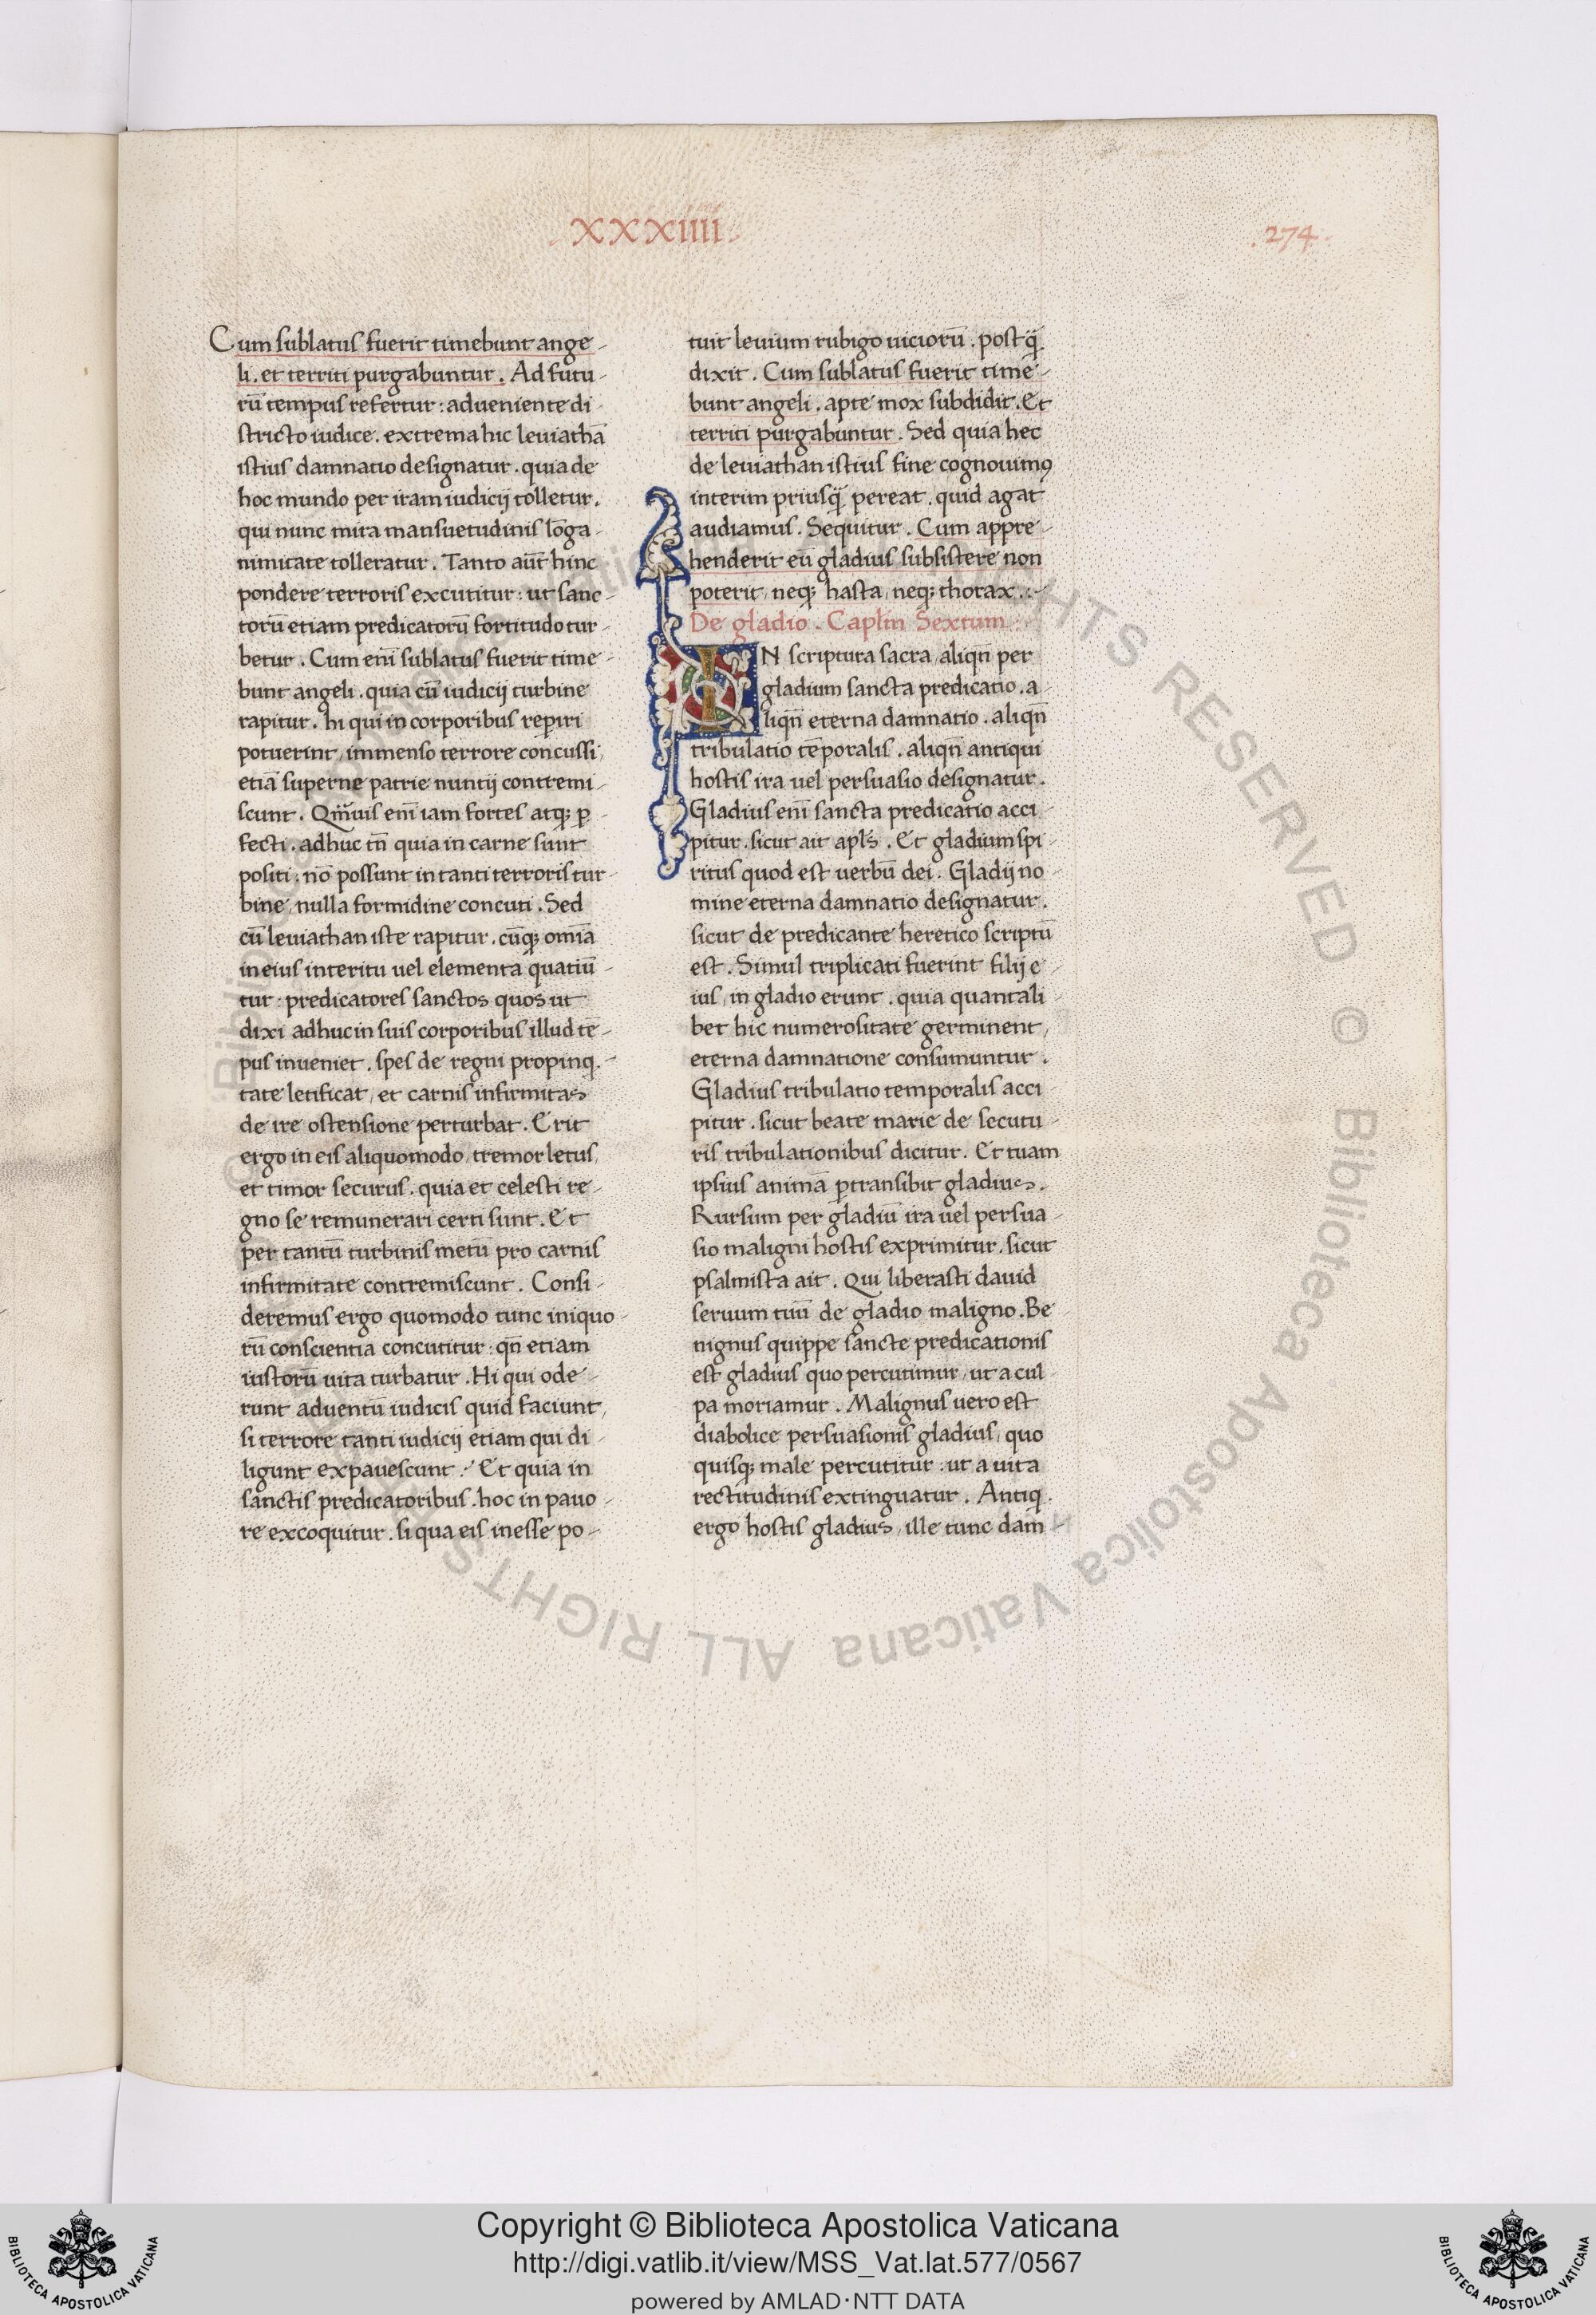 .XXXIIII.
.274.
Cum sublatus fuerit timebunt ange-
li. et territi purgabuntur. Ad futu-
rū tempus refertur: adueniente di-
stricto iudice. extrema hic leuiathā
istius damnatio designatur. quia de
hoc mundo per iram iudicij tolletur.
qui nunc mira mansuetudinis lōga-
nimitate tolleratur. Tanto aūt hinc
pondere terroris excutitur: ut sanc-
torū etiam predicatorū fortitudo tur-
betur. Cum enī sublatus fuerit time-
bunt angeli. quia cū iudicij turbine
rapitur. hi qui in corporibus reperiri
potuerint, immenso terrore concussi,
etiā superne patrie nuntij contremi-
scunt. Qm̄uis enī iam fortes atq; p̱
fecti. adhuc tn̄ quia in carne sunt
positi. nō possunt in tanti terroris tur-
bine, nulla formidine concuti. Sed
cū leuiathan iste rapitur. cūq; omīa
in eius interitu uel elementa quatiū-
tur: predicatores sanctos quos ut
dixi adhuc in suis corporibus illud tē-
pus inueniet. spes de regni propinq.-
tate letificat, et carnis infirmitas
de ire ostensione perturbat. Erit
ergo in eis aliquomodo, tremor letus,
et timor securus. quia et celesti re-
gno se remunerari certi sunt. Et
per tantū turbinis metū pro carnis
infirmitate contremiscunt. Consi-
deremus ergo quomodo tunc iniquo-
rū conscientia concutitur: qn̄ etiam
iustorū uita turbatur. Hi qui ode-
runt aduentū iudicis quid faciunt,
si terrore tanti iudicij etiam qui di-
ligunt expauescunt. Et quia in
sanctis predicatoribus. hoc in pauo-
re excoquitur. si qua eis inesse po-
tuit leuium rubigo uiciorū. postq̄.
dixit. Cum sublatus fuerit time-
bunt angeli. apte mox subdidit. Et
territi purgabuntur. Sed quia hec
de leuiathan istius fine cognouimꝰ
interim priusq̄ pereat. quid agat
audiamus. Sequitur. Cum appre-
henderit eū gladius subsistere non
poterit, neq; hasta, neq; thorax.:-
De gladio. Capl̄m Sextum:-
IN scriptura sacra, aliqn̄ per
gladium sancta predicatio. a-
liqn̄ eterna damnatio. aliqn̄
tribulatio tēporalis. aliqn̄ antiqui
hostis ira uel persuasio designatur.
Gladius enī sancta predicatio acci-
pitur. sicut ait apl̄s. Et gladium spi-
ritus quod est uerbū dei. Gladij no-
mine eterna damnatio designatur.
sicut de predicante heretico scriptū
est. Simul triplicati fuerint filij e-
ius, in gladio erunt. quia quantali-
bet hic numerositate germinent,
eterna damnatione consumuntur.
Gladius tribulatio temporalis acci-
pitur. sicut beate marie de secutu-
ris tribulationibus dicitur. Et tuam
ipsius animā p̱transibit gladius.
Rursum per gladiū ira uel persua-
sio maligni hostis exprimitur. sicut
psalmista ait. Qui liberasti dauid
seruum tuū de gladio maligno. Be-
nignus quippe sancte predicationis
est gladius quo percutimur, ut a cul-
pa moriamur. Malignus uero est
diabolice persuasionis gladius, quo
quisq; male percutitur: ut a uita
rectitudinis extinguatur. Antiq.
ergo hostis gladius, ille tunc dam-
© Biblioteca Apostolica Vaticana ALL RIGHTS RESERVED © Biblioteca Apostolica Vaticana ALL RIGHTS
Copyright © Biblioteca Apostolica Vaticana
http://digi.vatlib.it/view/MSS_Vat.lat.577/0567
powered by AMLAD·NTT DATA
BIBLIOTECA APOSTOLICA VATICANA
BIBLIOTECA APOSTOLICA VATICANA